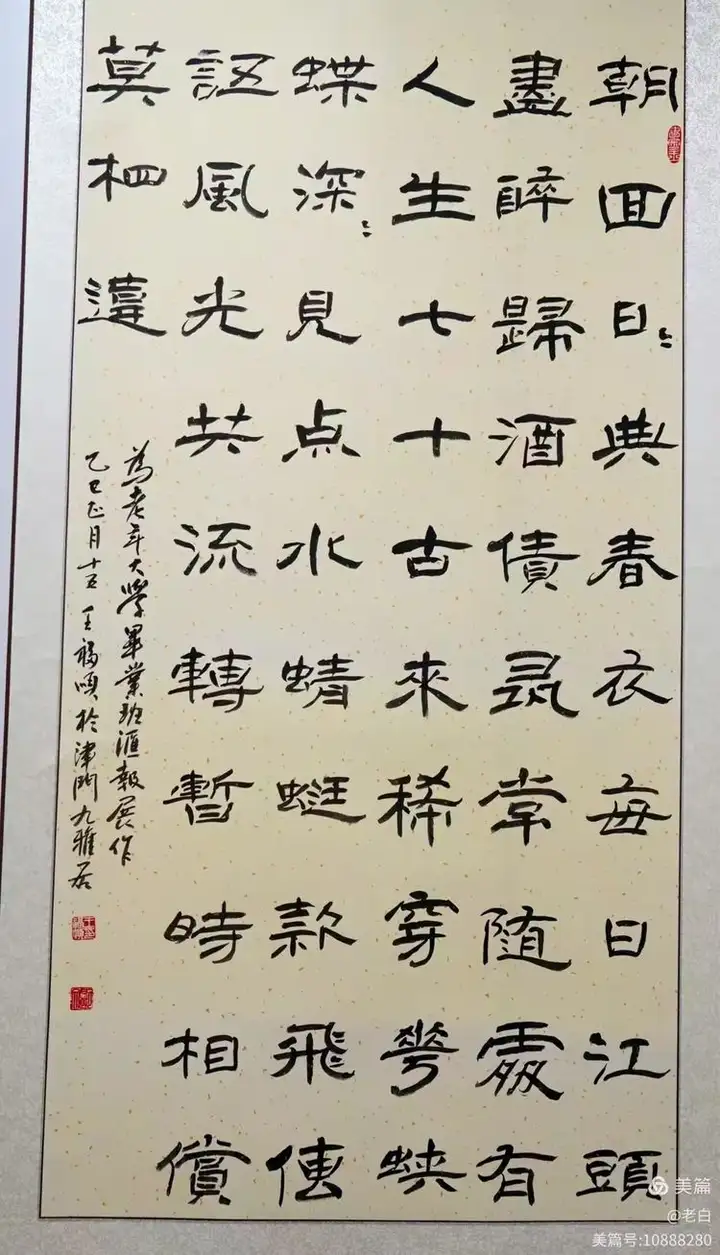 朝回日〻典春衣每日江頭
盡醉歸酒債尋常随處有
人生七十古來稀穿花蛺
蝶深〻見点水蜻蜓款飛傳
語風光共流轉暫時相償
莫相違
為老年大學畢業班滙報展作
乙巳正月十五王福頌於津門九雅居
美篇
@老白
美篇号:10888280